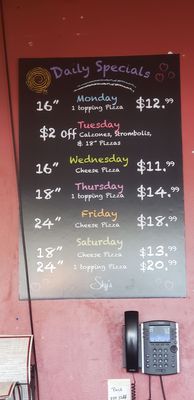 Daily Specials
Monday
16" 1 topping Pizza $12.99
Tuesday
$2 off Calzones, Strombolis,
& 18" Pizzas
Wednesday
16" Cheese Pizza $11.99
Thursday
18" 1 topping Pizza $14.99
Friday
24" Cheese Pizza $18.99
Saturday
18" Cheese Pizza $13.99
24" 1 topping Pizza $20.99
Sky's